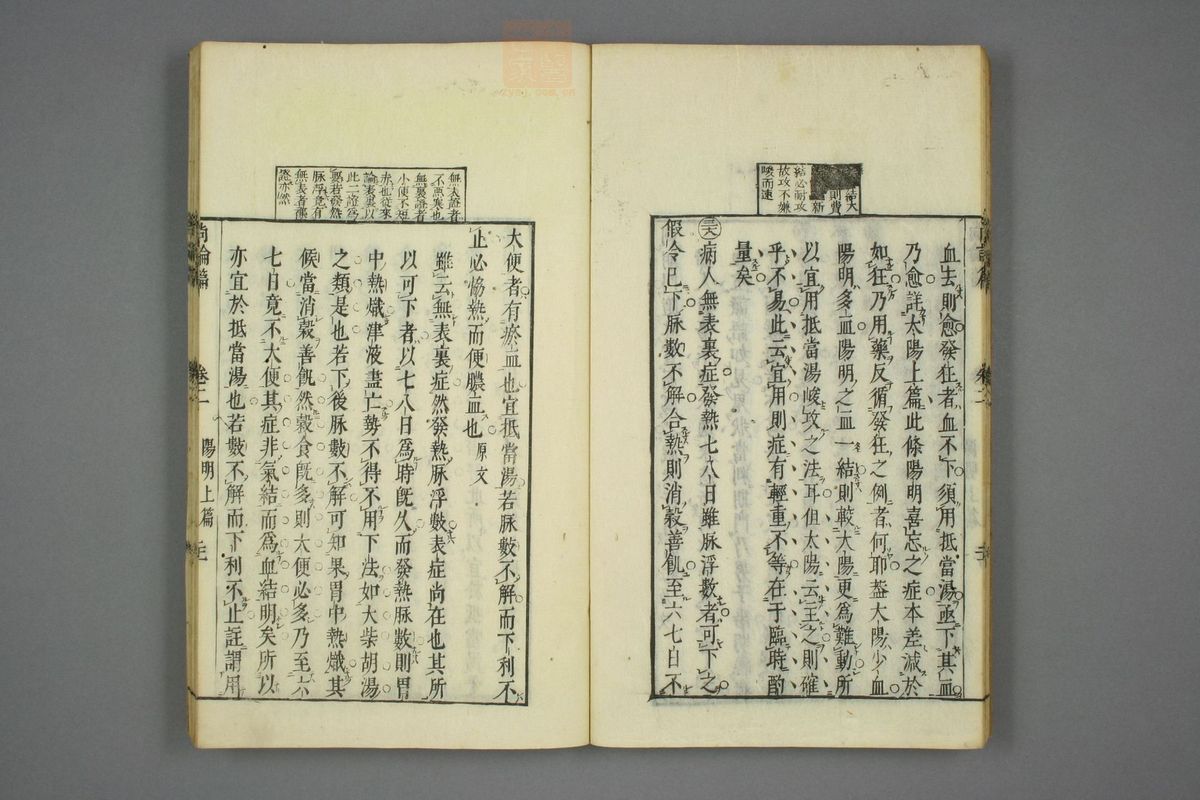 血去則愈發狂者血不下須用抵當湯亟下其血
乃愈詳太陽上篇此條陽明喜忘之症本差減於
如狂乃用藥反循發狂之例者何耶蓋太陽少血
陽明多血陽明之血一結則較太陽更爲難動所
以宜用抵當湯峻攻之法耳但太陽云主之則確
乎不易此云宜用則症有輕重不等在于臨時酌
量矣
病人無表裏症發熱七八日雖脉浮數者可下之
假令已下脉數不解合熱則消穀善飢至六七日不
結大
則費
新
結必耐攻
故攻不嫌
峻而速
大便者有瘀血也宜抵當湯若脉數不解而下利不
止必恊熱而便膿血也 原文
雖云無表裏症然發熱脉浮數表症尚在也其所
以可下者以七八日爲時旣久而發熱脉數則胃
中熱熾津液盡亡勢不得不用下法如大柴胡湯
之類是也若下後脉數不解可知果胃中熱熾其
候當消穀善飢然穀食旣多則大便必多乃至六
七日竟不大便其症非氣結而爲血結明矣所以
亦宜於抵當湯也若數不解而下利不止註謂用
無表證者
不惡寒也
無裏證者
小便不短
赤也從來
論表裏以
此二證爲
若發然
脉浮竟有
無表者
亦然
尚論篇
卷二
陽明上篇
尚論篇
卷二